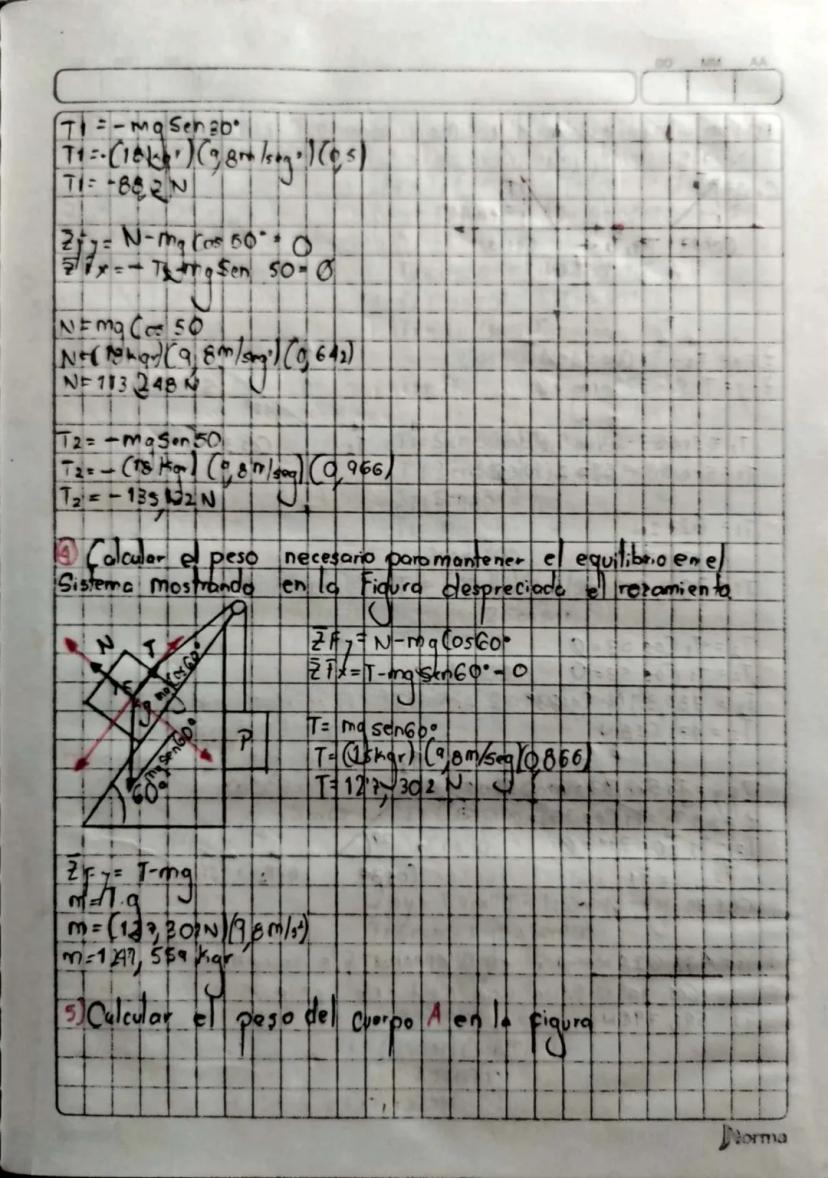 DD MM AA
T1 = -mg Sen30°
T1 = -(18kgr)(9,8m/seg²)(0,5)
T1 = -88,2 N
ΣFy = N-mg Cos 50° = 0
ΣFx = - T2-mg Sen 50 = 0
N = mg Cos 50
N = (18kgr)(9,8m/seg²)(0,642)
N = 113,248 N
T2 = -mg Sen 50
T2 = -(18 kgr) (9,8m/seg) (0,966)
T2 = -135,132 N
4) Calcular el peso necesario para mantener el equilibrio en el
Sistema mostrando en la Figura despreciado el rozamiento
N T mg Cos60°
ΣFy = N-mg Cos60°
ΣFx = T-mg sen60° = 0
mg Sen60°
P
T = mg sen60°
T = (15kgr) (9,8m/seg)(0,866)
T = 127,302 N
60°
ΣFy = T-mg
m = T.g
m = (127,302N)(9,8m/s²)
m = 1247,559 kgr
5) Calcular el peso del cuerpo A en la figura
Norma